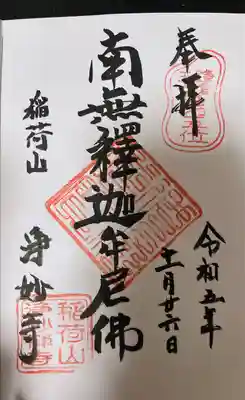 奉拝
令和五年
十一月廿六日
南無釋迦牟尼佛
稲荷山
浄妙寺
稲荷山
浄妙寺